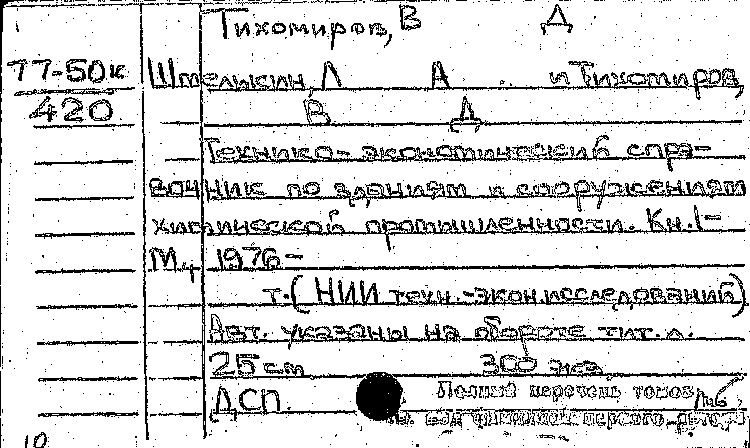 Тихомиров, В Д
77-50к
420
Штеликин, Л А и Тихомиров,
В Д
Технико-экономический спра-
вочник по зданиям и сооружениям
химической промышленности. Кн. 1-
М., 1976-
т. (НИИ техн.-экон. исследований)
Авт. указаны на обороте тит. л.
25 см 300 экз.
ДСП. Полный перечень томов
10